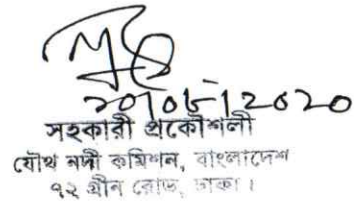 20/05/2020
সহকারী প্রকৌশলী
যৌথ নদী কমিশন, বাংলাদেশ
৭২ গ্রীন রোড, ঢাকা।